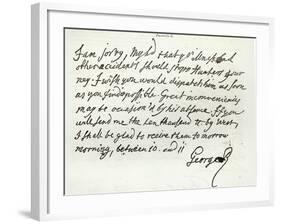 I am sorry, My Lord that yr illness and
other accidents should stopp Hunters Jour
ney. I wish you would dispatch him as soon
as you find possible. Great inconveniency
may be occasion'd by his absence. If you
will send me the ten thousand £ by West,
I shall be glad to receive them to morrow
morning, between 10. and 11
George R